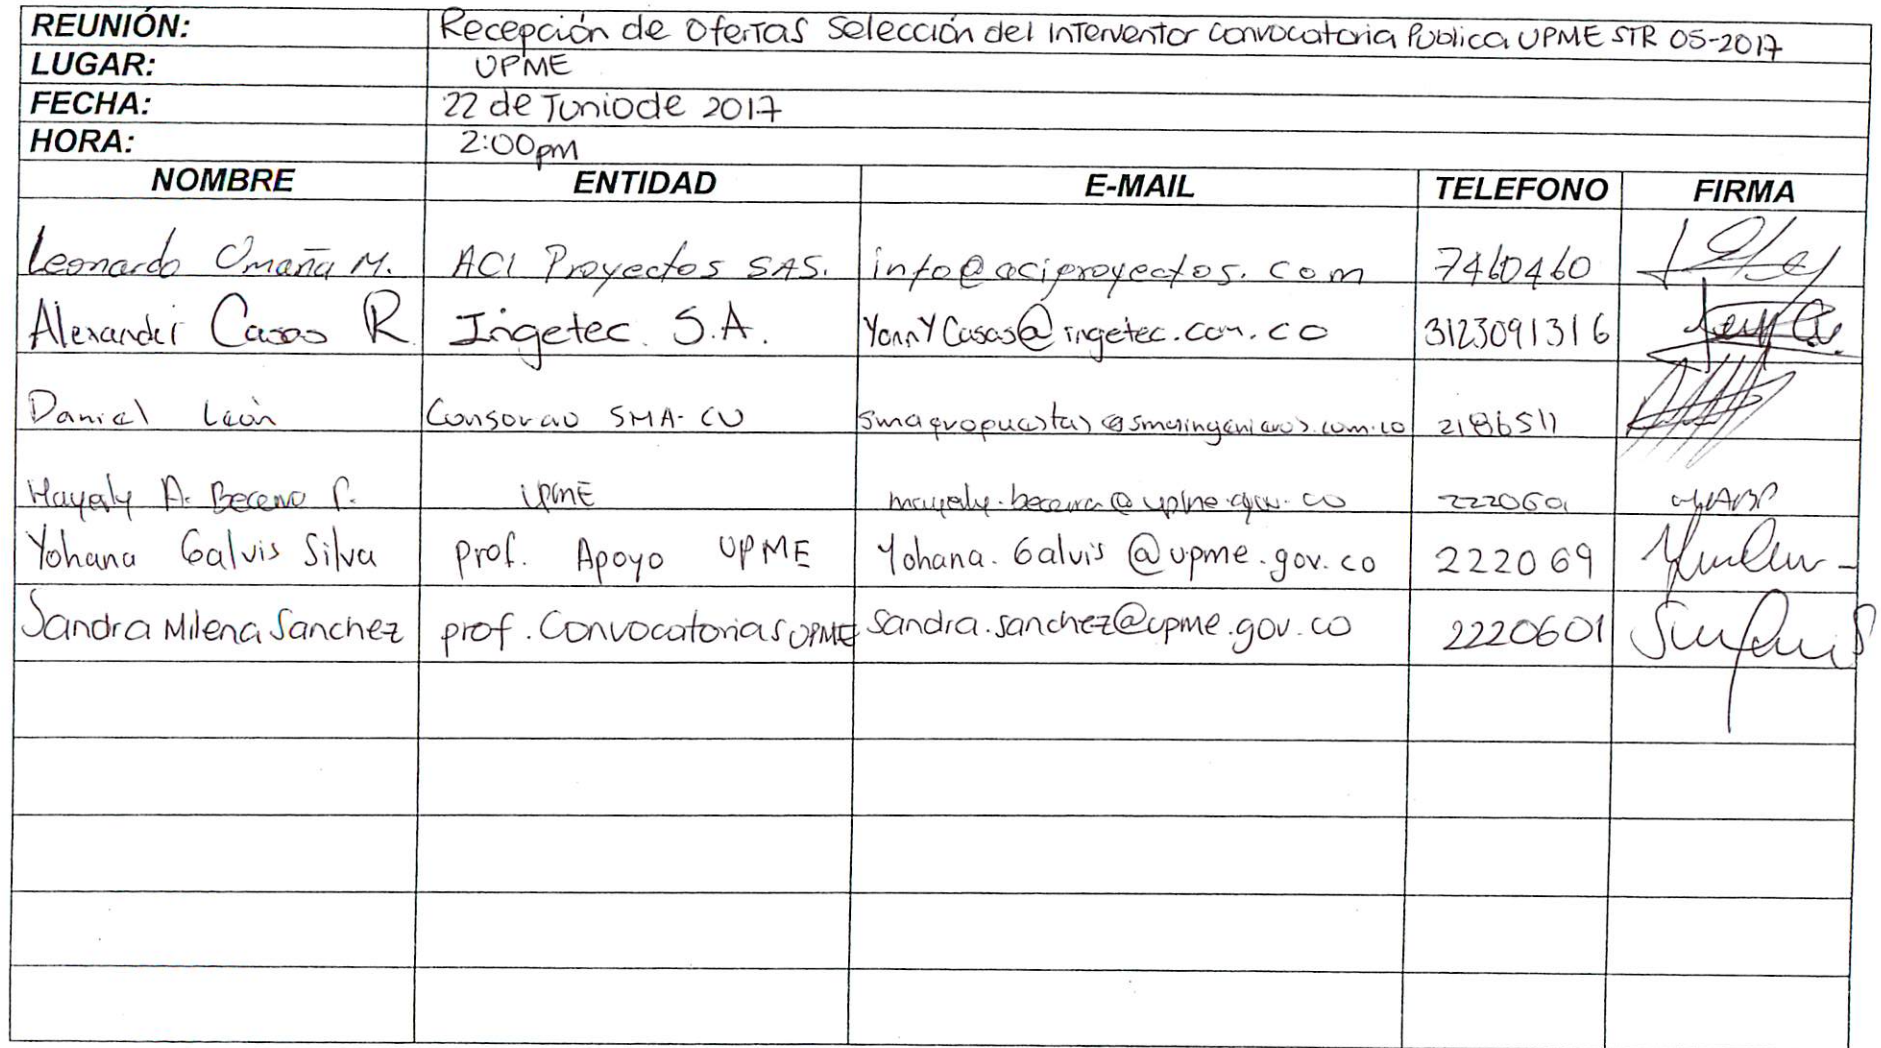 REUNIÓN: Recepción de Ofertas Selección del Interventor Convocatoria Publica UPME STR 05-2017
LUGAR: UPME
FECHA: 22 de Junio de 2017
HORA: 2:00pm
NOMBRE ENTIDAD E-MAIL TELEFONO FIRMA
Leonardo Omaña M. ACI Proyectos SAS. info@aciproyectos.com 7460460
Alexander Casas R. Ingetec S.A. YonnyCasas@ingetec.com.co 3123091316
Daniel León Consorcio SMA-CU smapropuestas@smaingenieros.com.co 2186511
Mayely A. Becerra P. UPME mayely.becerra@upme.gov.co 2220601
Yohana Galvis Silva prof. Apoyo UPME Yohana.Galvis@upme.gov.co 222069
Sandra Milena Sanchez prof. Convocatorias UPME Sandra.sanchez@upme.gov.co 2220601